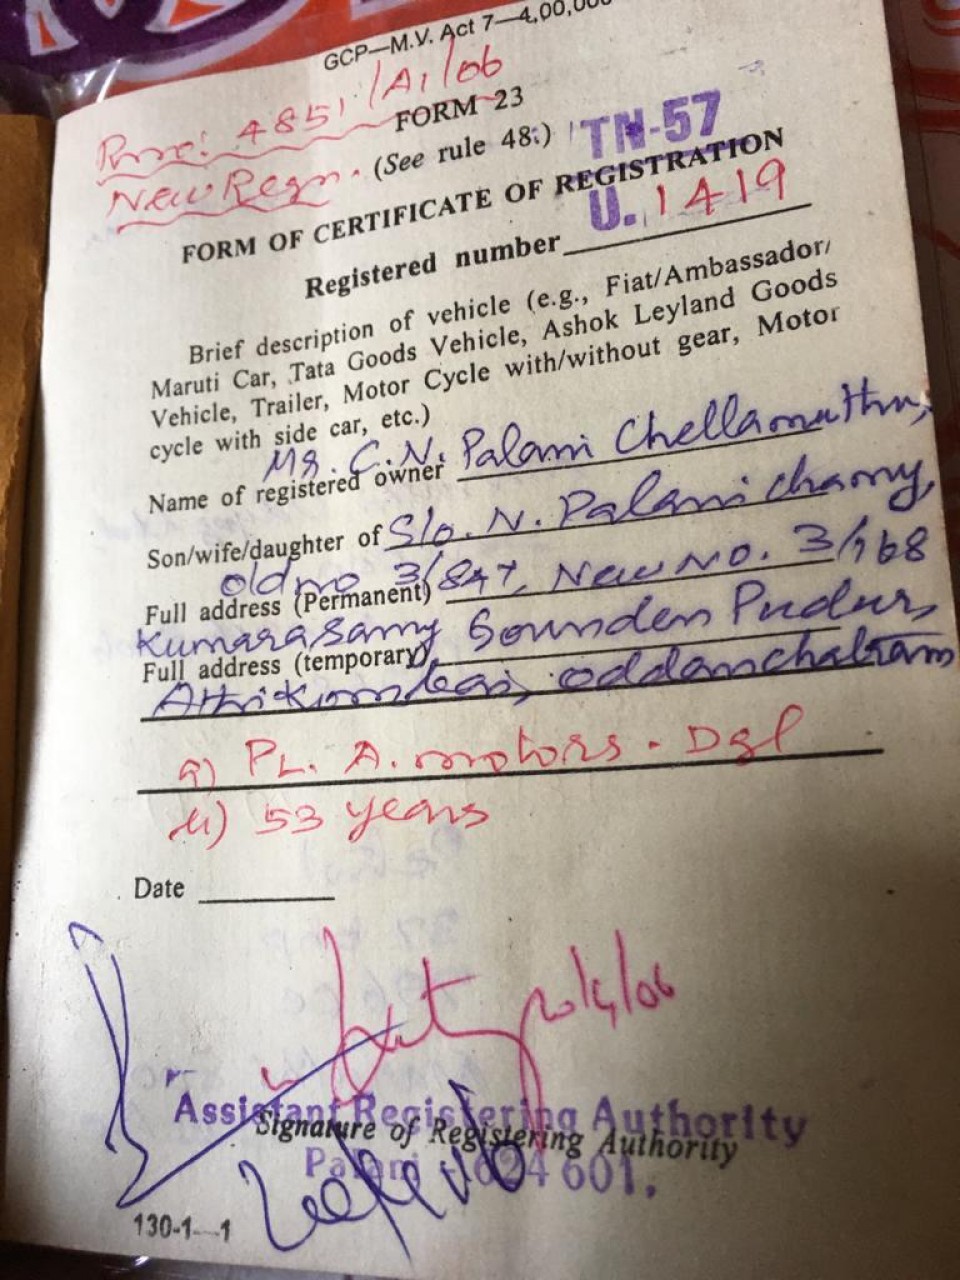 GCP—M.V. Act 7—4,00,000
485 /A1/06
FORM 23
New Regn. (See rule 48:) TN-57
FORM OF CERTIFICATE OF REGISTRATION
Registered number U. 1419
Brief description of vehicle (e.g., Fiat/Ambassador/
Maruti Car, Tata Goods Vehicle, Ashok Leyland Goods
Vehicle, Trailer, Motor Cycle with/without gear, Motor
cycle with side car, etc.)
C.N. Palani Chellamuthu,
Name of registered owner
Son/wife/daughter of S/o. N. Palanichamy,
old no 3/847, New No. 3/768
Full address (Permanent)
Kumarasamy Gounden Pudur,
Full address (temporary)
oddanchatram
PL. A. motors. Dgl
53 years
Date
20/4/06
Assistant Registering Authority
Signature of Registering Authority
Palani - 624 601.
130-1—1